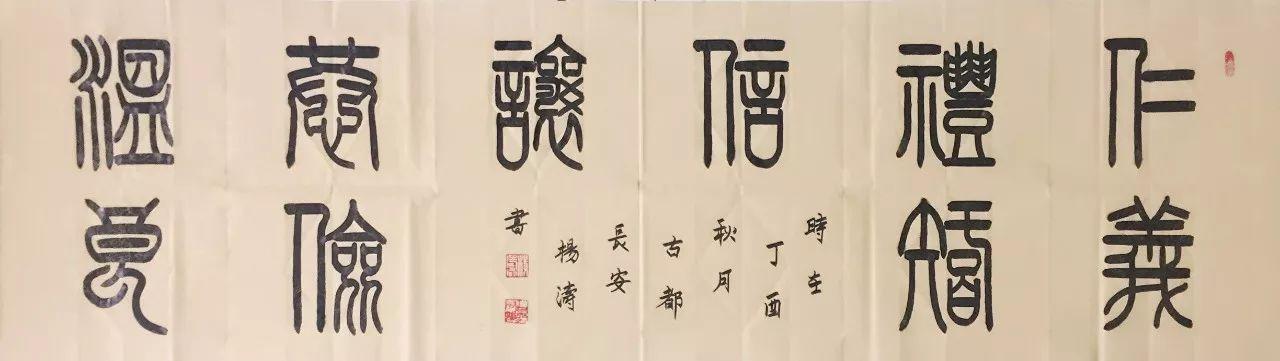 仁義
禮智
信
溫良
恭儉
讓
時在
丁酉
秋月
古都
長安
楊濤
書